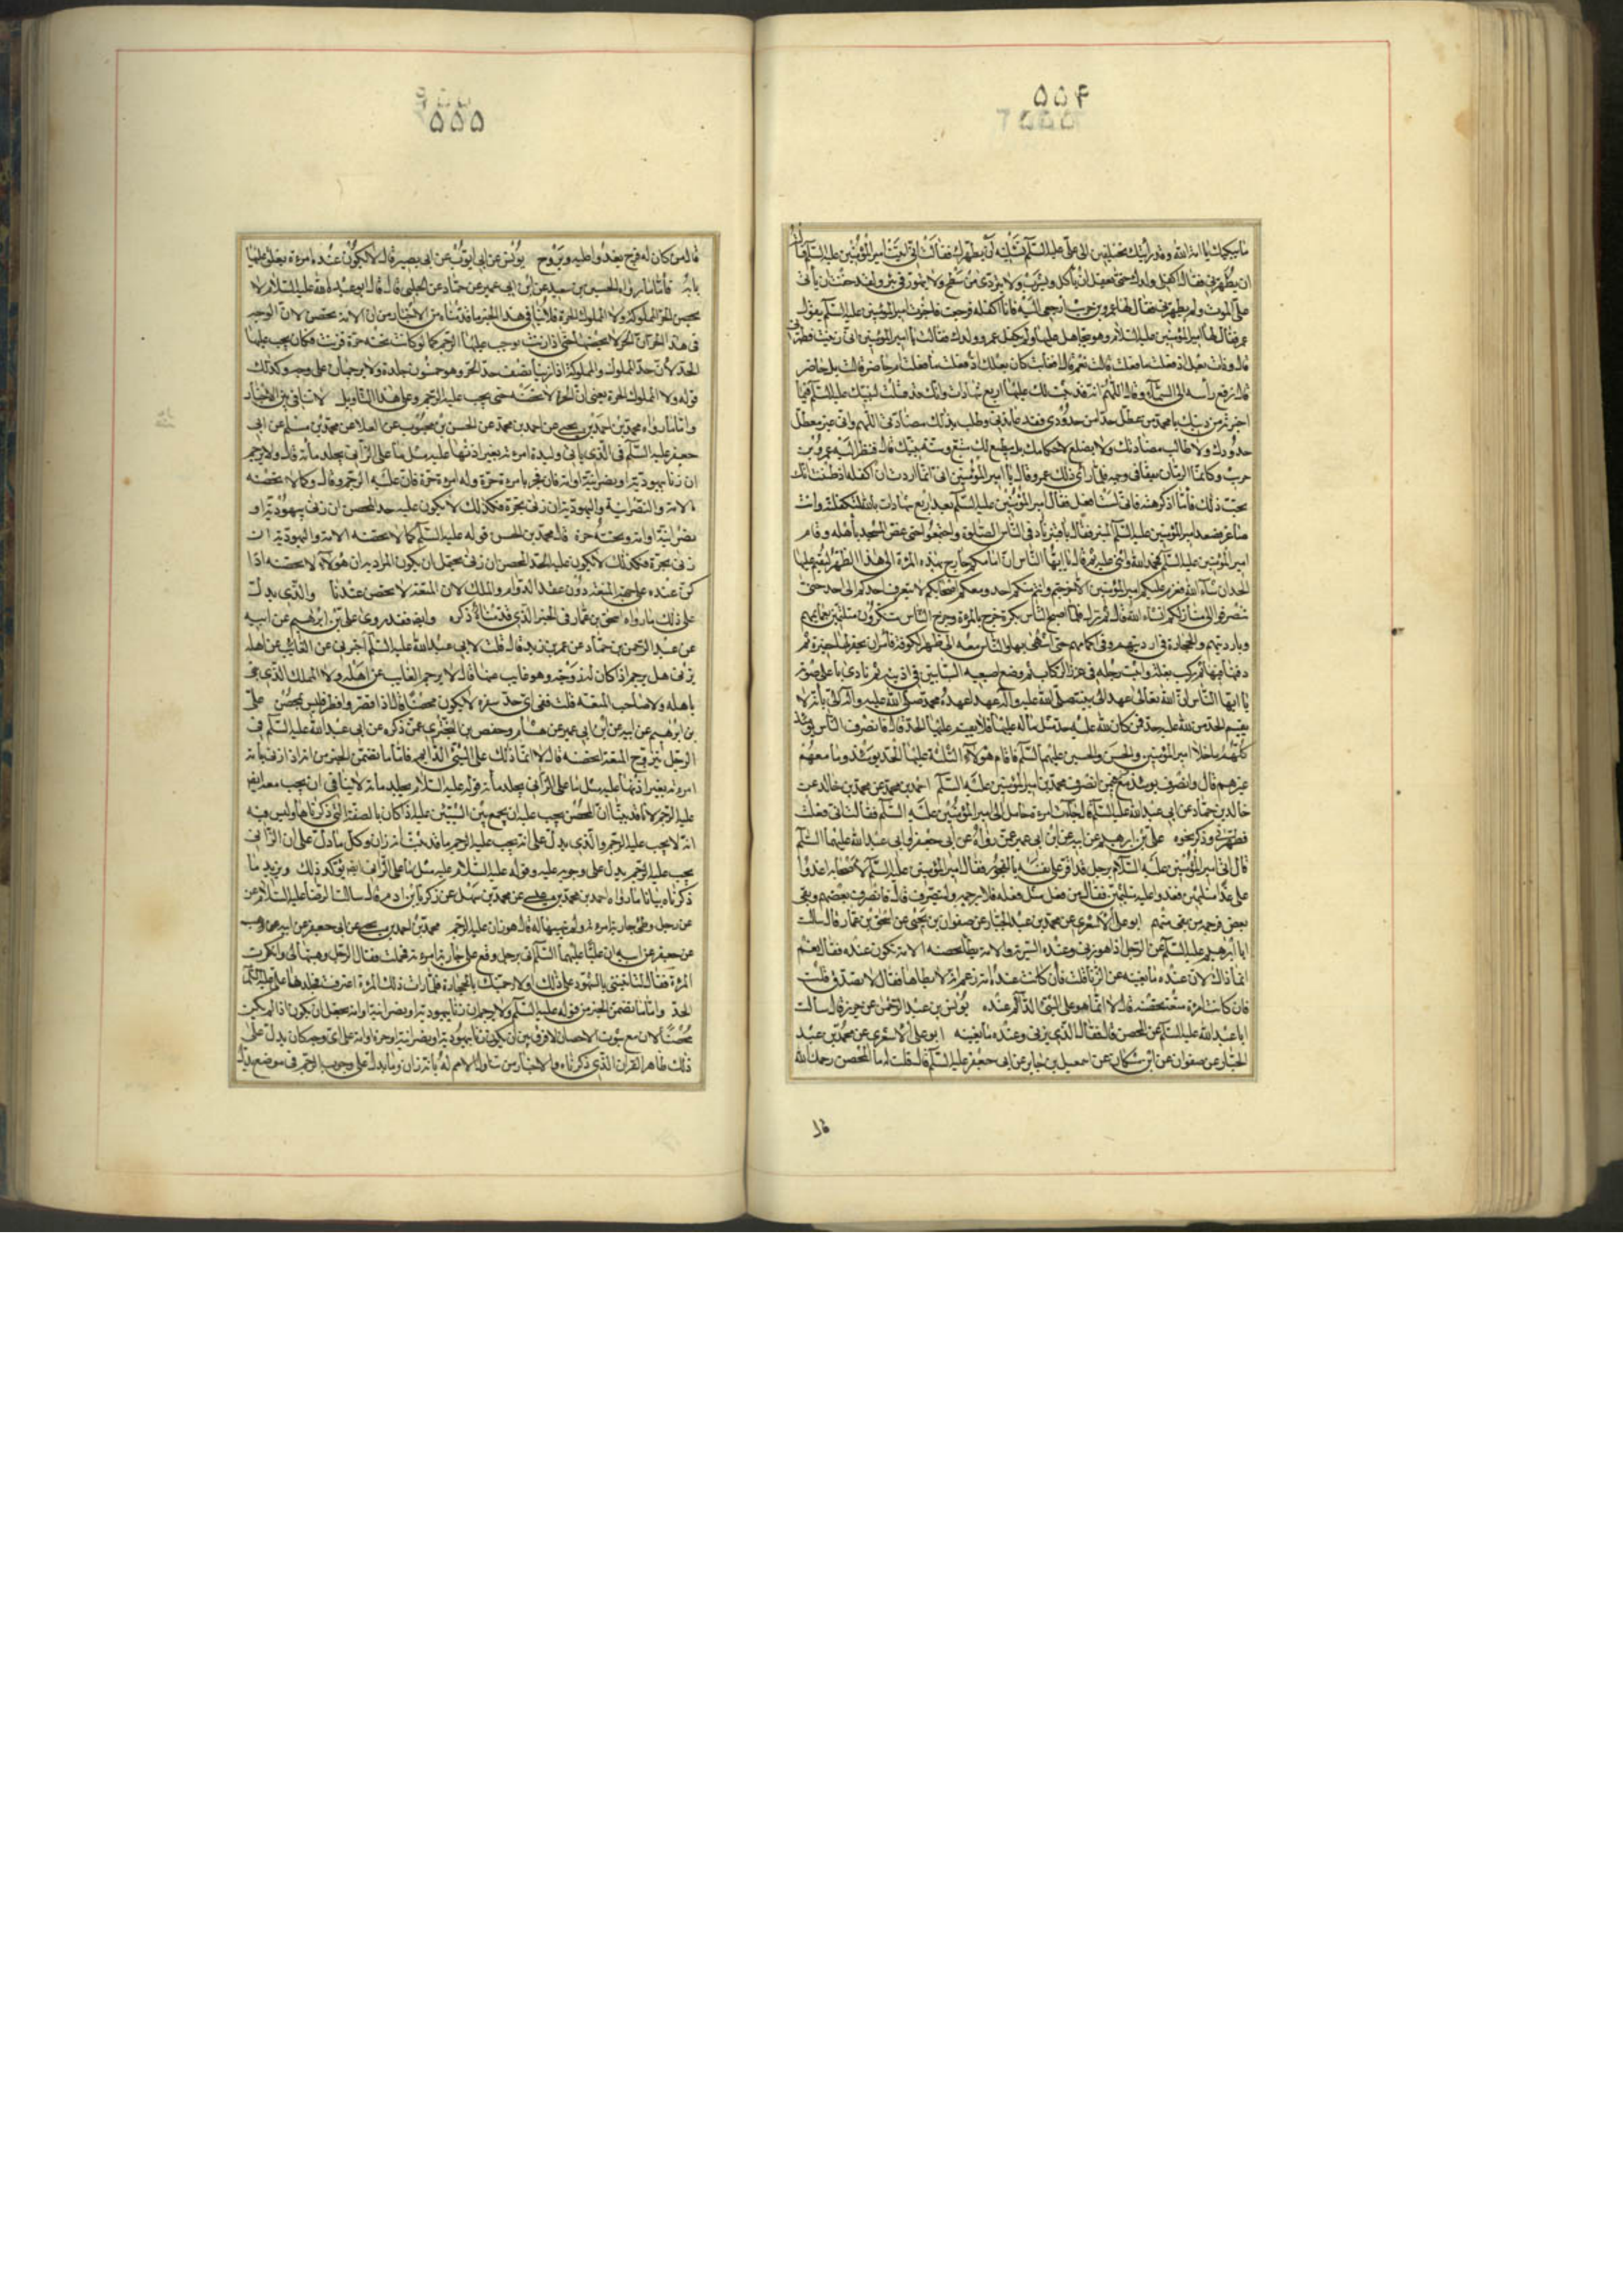 ۵۵۴
ما يبكيك يا امة الله وقد رأيتك تختلفين الى علي عليه السلم تسئلينه أن يطهرك فقالت اني اتيت امير المؤمنين عليه السلم فسألته
ان يطهرني فقال اكفلي ولدك حتى يعقل ان يأكل ويشرب ولا يتردى من سطح ولا يتهور في بئر ولقد خفت ان يأتي
علي الموت ولم يطهرني فقال لها عمرو بن حريث ارجعي اليه فانا اكفله فرجعت فاخبرت امير المؤمنين عليه السلم بقول
عمرو فقال لها امير المؤمنين عليه السلام وهو متجاهل عليها ولم يكفل عمرو ولدك فقالت يا امير المؤمنين اني زنيت فطهرني
قال وذات بعل اذ فعلت ما فعلت قالت نعم قال افغائب كان بعلك اذ فعلت ما فعلت ام حاضر قالت بل حاضر
قال فرفع رأسه الى السماء وقال اللهم انه قد ثبت لك عليها اربع شهادات وانك قد قلت لنبيك عليه السلم فيما
اخبرته من دينك يا محمد من عطل حدا من حدودي فقد عاندني وطلب بذلك مضادتي اللهم واني غير معطل
حدودك ولا طالب مضادتك ولا مضيع لاحكامك بل مطيع لك متبع وسنة نبيك قال فنظر اليه عمرو بن
حريث وكانما الرمان يفقأ في وجهه فلما رأى ذلك عمرو قال يا امير المؤمنين اني انما اردت ان اكفله اذ ظننت انك
تحب ذلك فأما اذ كرهته فاني لست افعل فقال امير المؤمنين عليه السلم بعد اربع شهادات بالله لتكفلنه وانت
صاغر فصعد امير المؤمنين عليه السلم المنبر فقال يا قنبر ناد في الناس الصلوة واجتمعوا حتى غص المسجد بأهله وقام
امير المؤمنين عليه السلم فحمد الله واثنى عليه ثم قال يا ايها الناس ان امامكم خارج بهذه المرأة الى هذا الظهر ليقيم عليها
الحد ان شاء الله فعزم عليكم امير المؤمنين الا خرجتم وانتم متنكرون ومعكم احجاركم لا يتعرف احدكم الى احد حتى
تنصرفوا الى منازلكم انشاء الله قال ثم نزل فلما اصبح الناس بكرة خرج بالمرأة وخرج الناس متنكرون متلثمين بعمايمهم
وبارديتهم والحجارة في ارديتهم وفي اكمامهم حتى انتهى بها والناس معه الى ظهر الكوفة فأمر ان يحفر لها حفيرة ثم
دفنها فيها ثم ركب بغلته واثبت رجله في غرز الركاب ثم وضع اصبعيه السبابتين في اذنيه ثم نادى باعلى صوته
يا ايها الناس ان الله تعالى عهد الى نبيه صلى الله عليه وآله عهدا عهده محمد صلى الله عليه وآله الي بأنه لا
يقيم الحد من لله عليه حد فمن كان لله عليه حد مثل ماله عليها فلا يقيم عليها الحد قال فانصرف الناس يومئذ
كلهم ما خلا امير المؤمنين والحسن والحسين عليهم السلم فاقام هؤلاء الثلثة عليها الحد يومئذ وما معهم
غيرهم قال وانصرف يومئذ فيمن انصرف محمد بن امير المؤمنين عليه السلم احمد بن محمد عن محمد بن خالد عن
خالد بن حماد عن ابي عبد الله عليه السلم قال جاءت امرأة حامل الى امير المؤمنين عليه السلم فقالت اني فعلت
فطهرني وذكر نحوه علي بن ابرهيم عن ابيه عن ابن ابي عمير عمن رواه عن ابي جعفر او ابي عبد الله عليهما السلم
قال اتي امير المؤمنين عليه السلام برجل قد اقر على نفسه بالفجور فقال امير المؤمنين عليه السلم لاصحابه اغدوا
علي غدا متلثمين فغدوا عليه متلثمين فقال لهم من فعل مثل فعله فلا يرجمه ولينصرف قال فانصرف بعضهم وبقي
بعض فرجمه من بقي منهم ابو علي الاشعري عن محمد بن عبد الجبار عن صفوان بن يحيى عن اسحق بن عمار قال سالت
ابا ابرهيم عليه السلم عن الرجل اذا هو زنى وعنده السرية والامة يطأها تحصنه الامة تكون عنده فقال نعم
انما ذاك لان عنده ما يغنيه عن الزنا قلت فان كانت عنده امة زعم انه لا يطأها فقال لا يصدق قلت
فان كانت امرأة متعة تحصنه قال لا انما هو على الشيء الدائم عنده يونس بن عبد الرحمن عن حريز قال سالت
ابا عبد الله عليه السلم عن المحصن قال فقال الذي يزني وعنده ما يغنيه ابو علي الاشعري عن محمد بن عبد
الجبار عن صفوان عن ابن سكان عن اسمعيل بن جابر عن ابي جعفر عليه السلم قال قلت له ما المحصن رحمك الله
قال
۵۵۵
قال من كان له فرج يغدوا عليه ويروح يونس عن ابي ايوب عن ابي بصير قال قال لا يكون عنده امرأة يغلق عليها
بابه فأما ما رواه الحسين بن سعيد عن ابن ابي عمير عن حماد عن الحلبي قال قال ابو عبد الله عليه السلام لا
يحصن الحر المملوكة ولا المملوك الحرة فلا ينافي هذا الخبر ما قدمناه من الاخبار من ان الامة تحصن لان الوجه
في هذا الخبر ان الحر لا يحصنها حتى اذا زنت وجب عليها الرجم كما لو كانت تحته حرة فزنت فكان يجب عليها
الحد لأن حد المملوك والمملوكة اذا زنيا نصف حد الحر وهو خمسون جلدة ولا يرجمان على وجه وكذلك
قوله ولا المملوك الحرة يعني ان الحرة لا تحصنه حتى يجب عليه الرجم وعلى هذا التاويل لا تنافي بين الاخبار
واما ما رواه محمد بن احمد بن يحيى عن احمد بن محمد عن الحسن بن محبوب عن العلا عن محمد بن مسلم عن ابي
جعفر عليه السلم في الذي يأتي وليدة امرأته بغير اذنها عليه مثل ما على الزاني يجلد مأة قال ولا يرجم
ان زنا بيهودية او نصرانية او امة فان فجر بامرأة حرة وله امرأة حرة فان عليه الرجم وقال وكما لا تحصنه
الامة والنصرانية واليهودية ان زنى بحرة فكذلك لا يكون عليه حد المحصن ان زنى بيهودية او
نصرانية او امة وتحته حرة قال محمد بن الحسن قوله عليه السلم كما لا تحصنه الامة واليهودية ان
زنى بحرة فكذلك لا يكون عليه الحد المحصن ان زنى يحتمل ان يكون المراد به ان هؤلاء لا تحصنه اذا
كن عنده على جهة المتعة دون عقد الدوام والملك لان المتعة لا تحصن عندنا والذي يدل
على ذلك ما رواه اسحق بن عمار في الخبر الذي قدمناه ذكره وايضا فقد روى علي بن ابرهيم عن ابيه
عن عبد الرحمن بن حماد عن عمر بن يزيد قال قلت لابي عبد الله عليه السلم اخبرني عن الغائب عن اهله
يزني هل يرجم اذا كان له زوجة وهو غايب عنها قال لا يرجم الغايب عن اهله ولا المملك الذي لم يبن
باهله ولا صاحب المتعة قلت ففي اي حد سفره لا يكون محصنا قال اذا قصر وافطر فليس بمحصن علي
بن ابرهيم عن ابيه عن ابن ابي عمير عن هشام وحفص بن البختري عمن ذكره عن ابي عبد الله عليه السلم في
الرجل يتزوج المتعة اتحصنه قال لا انما ذلك على الشيء الدائم فأما ما تضمن الخبر من انه اذا زنى بأمة
امرأته بغير اذنها عليه مثل ما على الزاني يجلد مأة قوله عليه السلام يجلد مأة لا ينافي ان يجب معه ايضا
عليه الرجم لانا قد بينا ان المحصن يجب عليه ان يجمع بين الشيئين عليه اذا كان بالصفة التي ذكرناها وليس فيه
انه لا يجب عليه الرجم والذي يدل على انه يجب عليه الرجم ما قد ثبت انه زان وكل ما دل على ان الزاني
يجب عليه الرجم يدل على وجوبه عليه وقوله عليه السلام عليه مثل ما على الزاني ايضا يؤكد ذلك ويزيد ما
ذكرناه بيانا ما رواه احمد بن محمد بن عيسى عن محمد بن سهل عن زكريا بن ادم قال سالت الرضا عليه السلام عن
عن رجل وطئ جارية امرأته ولم تهبها له قال هو زان عليه الرجم محمد بن احمد بن يحيى عن ابي جعفر عن ابيه عن وهب
عن جعفر عن ابيه ان عليا عليهما السلم اتي برجل وقع على جارية امرأته فحملت فقال الرجل وهبتها لي وانكرت
المرأة فقال لتاتيني بالشهود على ذلك او لارجمنك بالحجارة فلما رات ذلك المرأة اعترفت فجلدها علي عليه السلم
الحد واما ما تضمن الخبر من قوله عليه السلم ولا يرجم ان زنا بيهودية او نصرانية او امة يحتمل ان يكون اذا لم يكن
محصنا لان مع ثبوت الاحصان لا فرق بين ان يكون زنا بيهودية او نصرانية او حرة او امة على اي وجه كان يدل على
ذلك ظاهر القران الذي ذكرناه والاخبار من تناول الاسم له بانه زان وما يدل على وجوب الرجم في موضع يدل